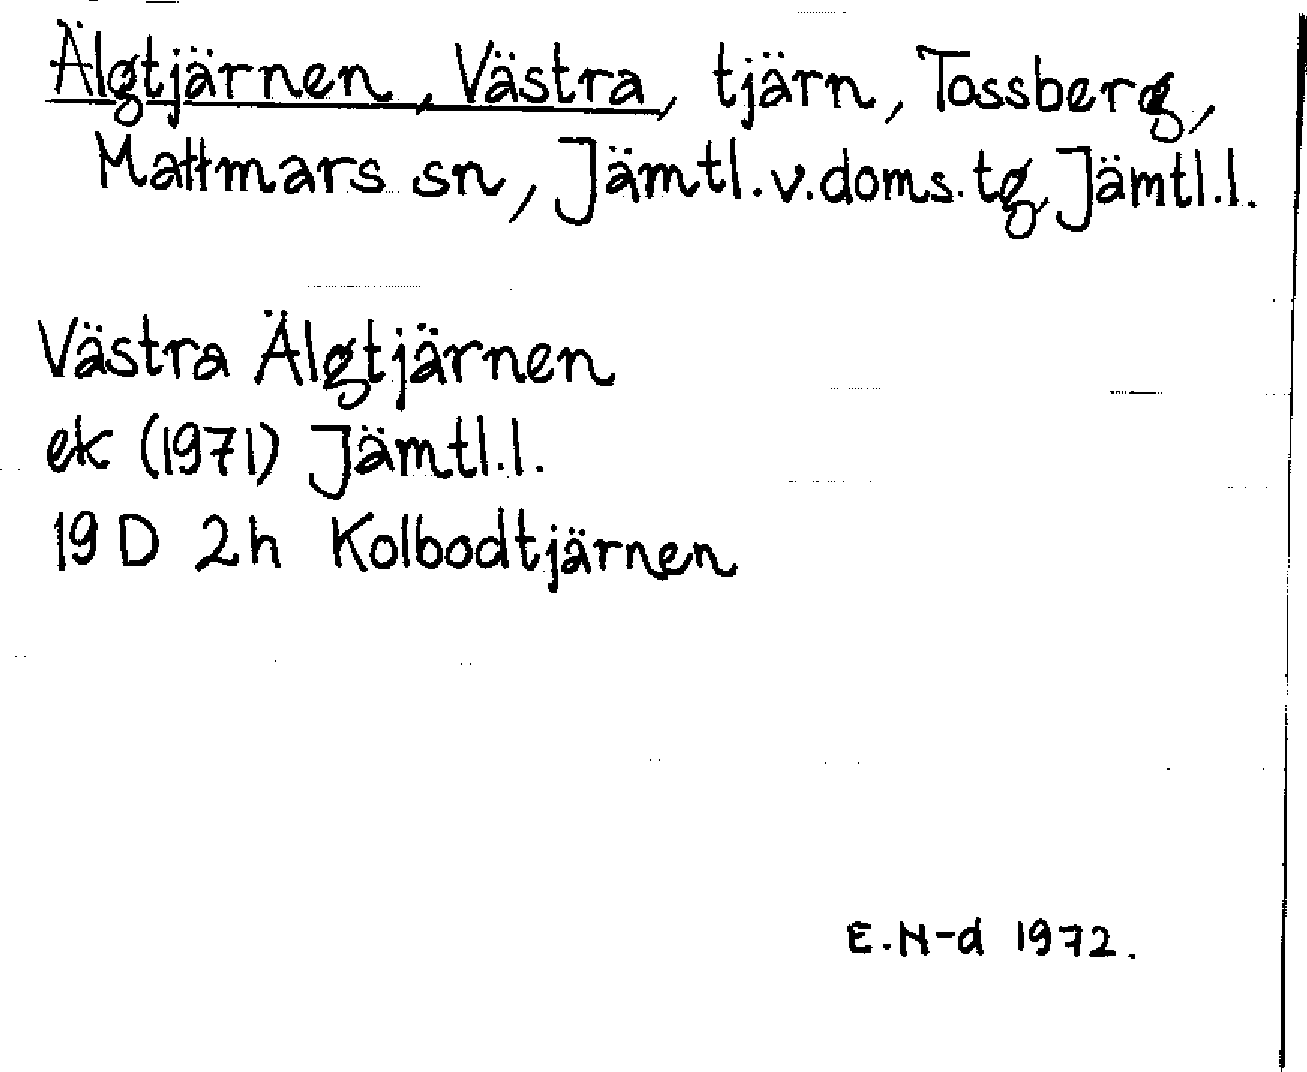 Älgtjärnen, Västra, tjärn, Tossberg,
Mattmars sn, Jämtl.v.doms.tg, Jämtl.l.
Västra Älgtjärnen
ek (1971) Jämtl.l.
19 D 2h Kolbodtjärnen
E.N-d 1972.